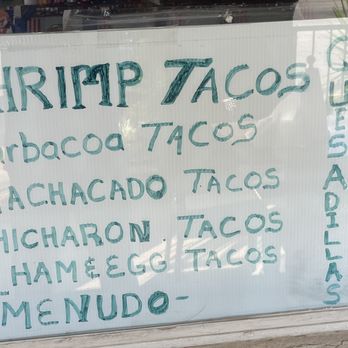 HRIMP TACOS
arbacoa TACOS
ACHACADO TACOS
HICHARON TACOS
HAM & EGG TACOS
MENUDO-
QUESADILLAS